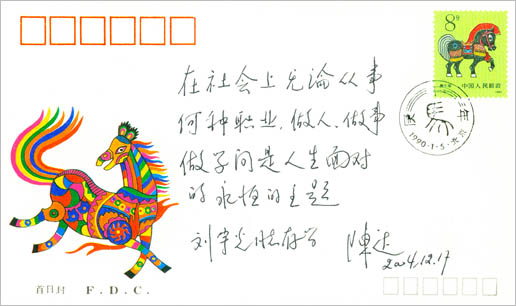 8分
中国人民邮政
在社会上无论从事
何种职业、做人、做事
做学问是人生面对
的永恒的主题
刘宇
存
陈
2004.12.17
庚午年
1990·1·5·北京
首日封 F.D.C.